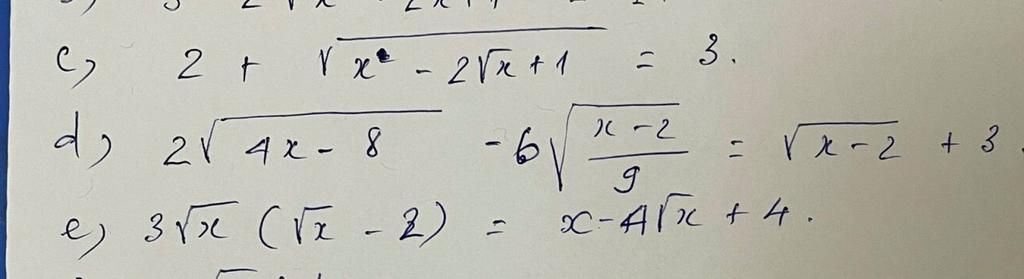 c) 2 + √(x - 2√x + 1) = 3.
d) 2√(4x - 8) - 6√((x - 2)/9) = √(x - 2) + 3
e) 3√x (√x - 2) = x - 4√x + 4.